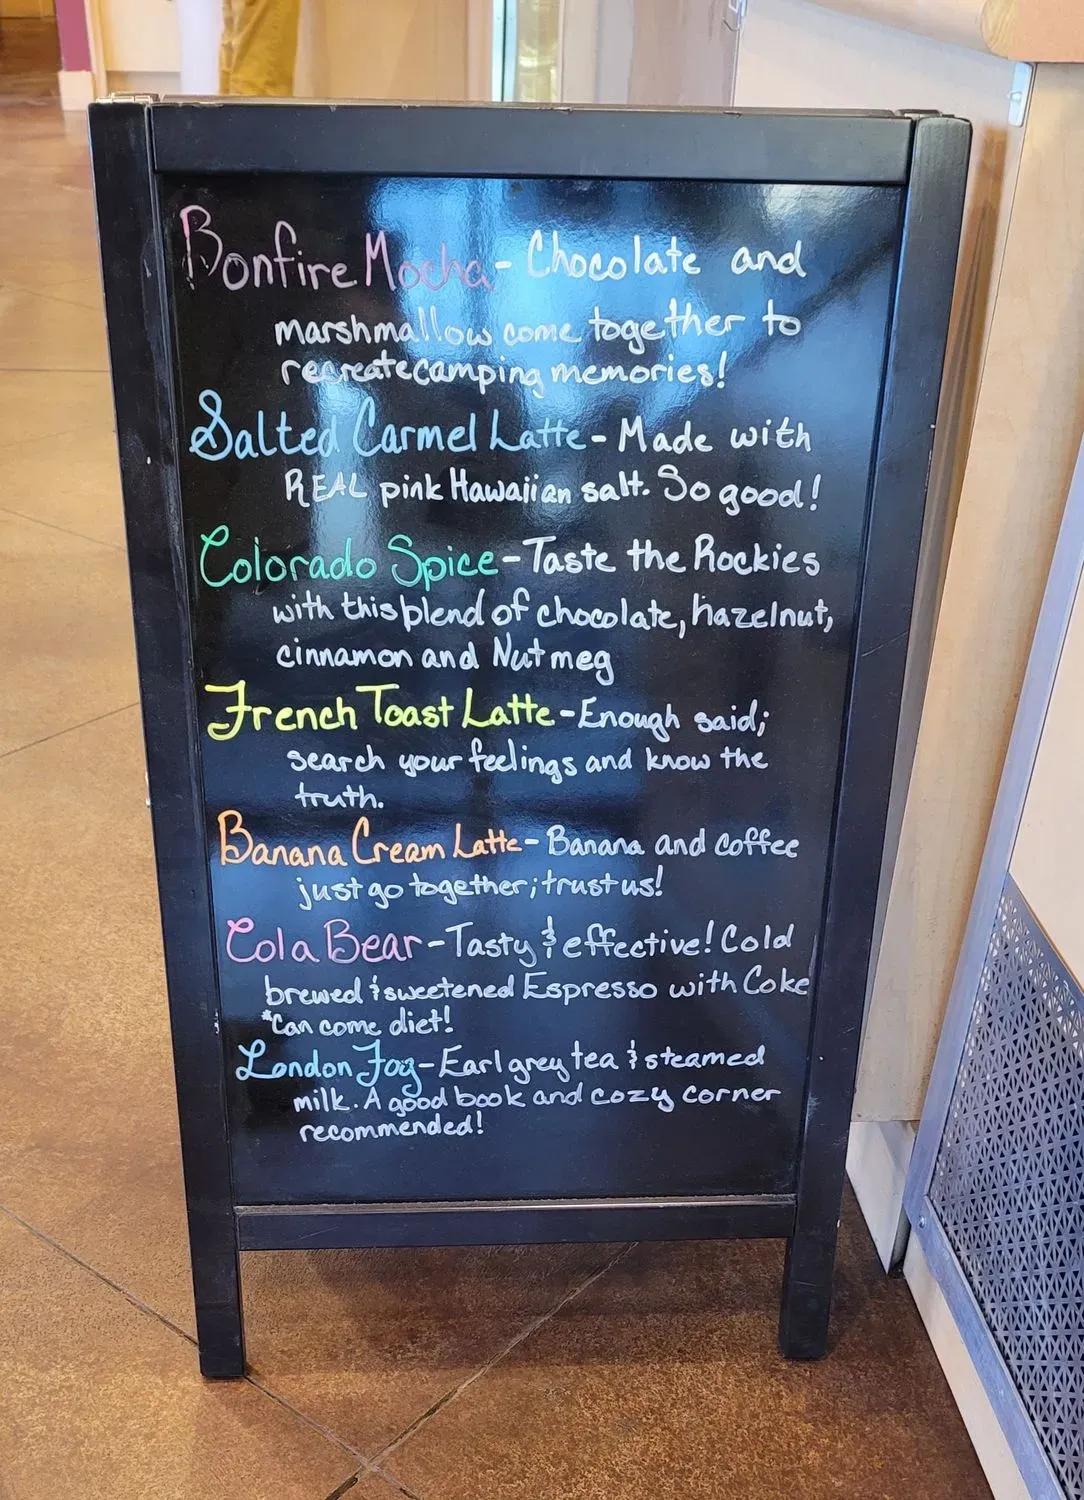 Bonfire Mocha - Chocolate and
marshmallow come together to
recreate camping memories!
Salted Carmel Latte - Made with
REAL pink Hawaiian salt. So good!
Colorado Spice - Taste the Rockies
with this blend of chocolate, hazelnut,
cinnamon and Nutmeg
French Toast Latte - Enough said;
search your feelings and know the
truth.
Banana Cream Latte - Banana and coffee
just go together; trust us!
Cola Bear - Tasty & effective! Cold
brewed & sweetened Espresso with Coke
*Can come diet!
London Fog - Earl grey tea & steamed
milk. A good book and cozy corner
recommended!